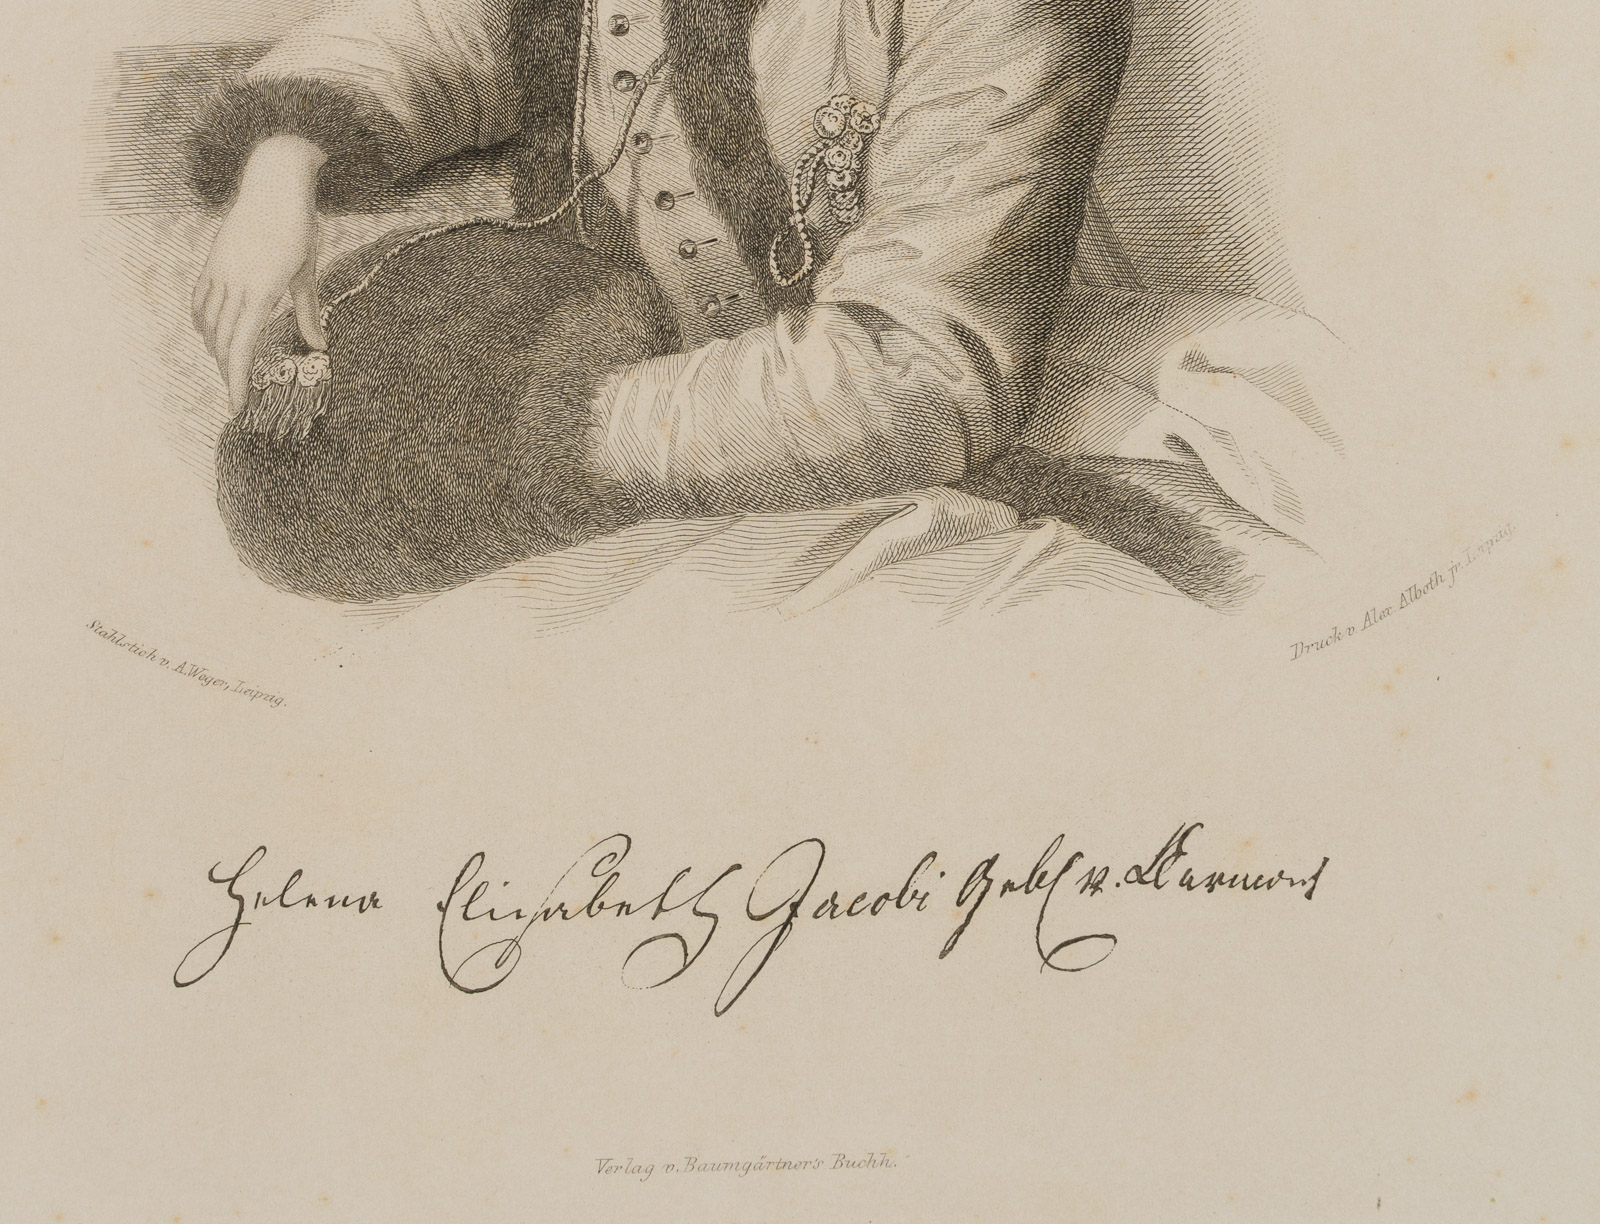 Stahlstich v. A. Weger, Leipzig.
Druck v. Alex. Alboth jr. Leipzig.
Helena Elisabeth Jacobi Geb v. Clermont
Verlag v. Baumgärtner's Buchh.